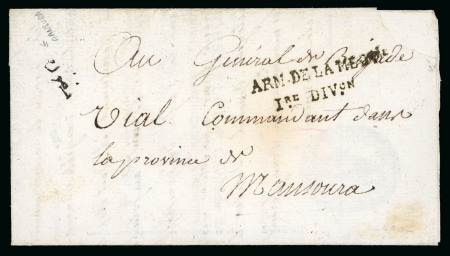 Au Général de Brigade
ARM. DE LA MÉDIT
1RE DIVON
Vial Commandant dans
la province de
Mansoura